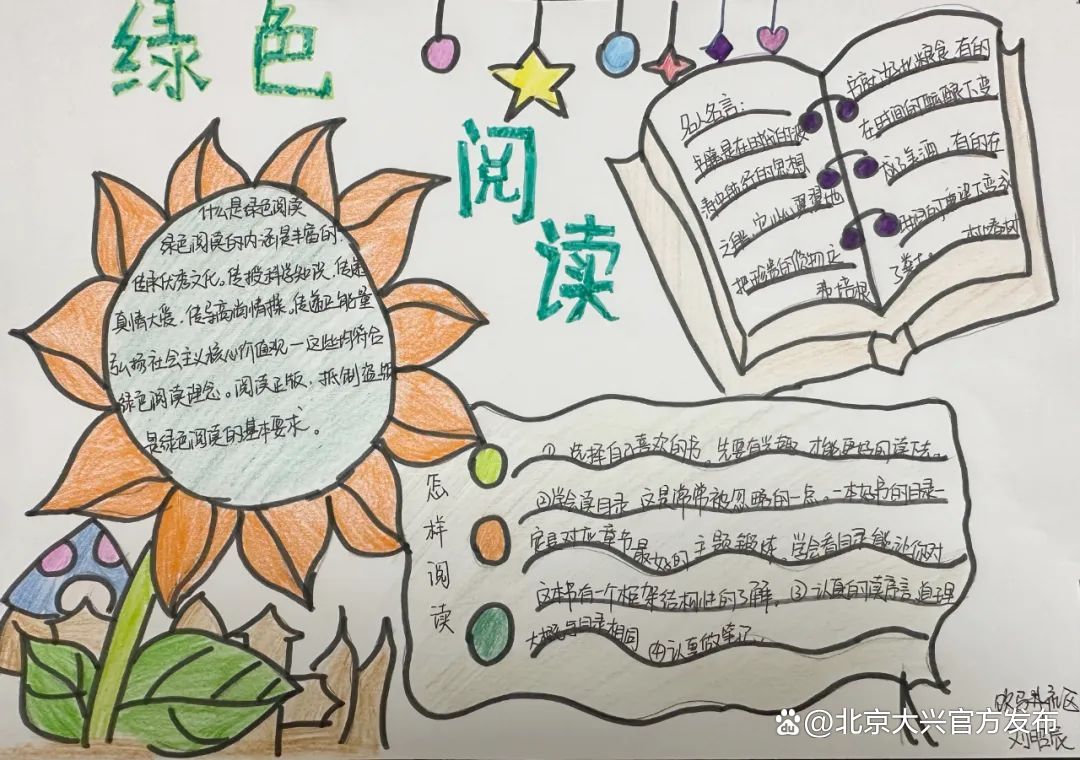 绿色
阅读
什么是绿色阅读
绿色阅读的内还是丰富的.
传承优秀文化。传授科学知识、传递
真情大爱、传导高尚情操。传递正能量
弘扬社会主义核心价值观一这些内符合
绿色阅读理念。阅读正版、抵制盗版
是绿色阅读的基本要求。
名人名言:
书籍是在时代的波
涛中航行的思想
之船,它小心翼翼地
把珍贵的货物
书就好比粮食,有的
在时间的酝酿下变
成美酒,有的在
时间的
了
怎样阅读
① 选择自己喜欢的书。先要有兴趣,才能更好的读下去。
②学会读目录 这是常常被忽略的一点。一本好书的目录一
定是对应章节最好的主题提炼 学会看目录能让你对
这本书有一个框架结构性的了解。③认真的读序言 道理
大概与目录相同 ④认真做笔记。
社区
刘昭辰
@北京大兴官方发布